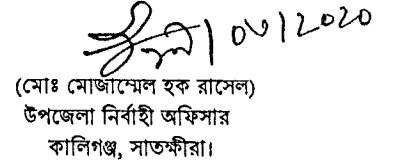 ০৩।২০২০
(মোঃ মোজাম্মেল হক রাসেল)
উপজেলা নির্বাহী অফিসার
কালিগঞ্জ, সাতক্ষীরা।